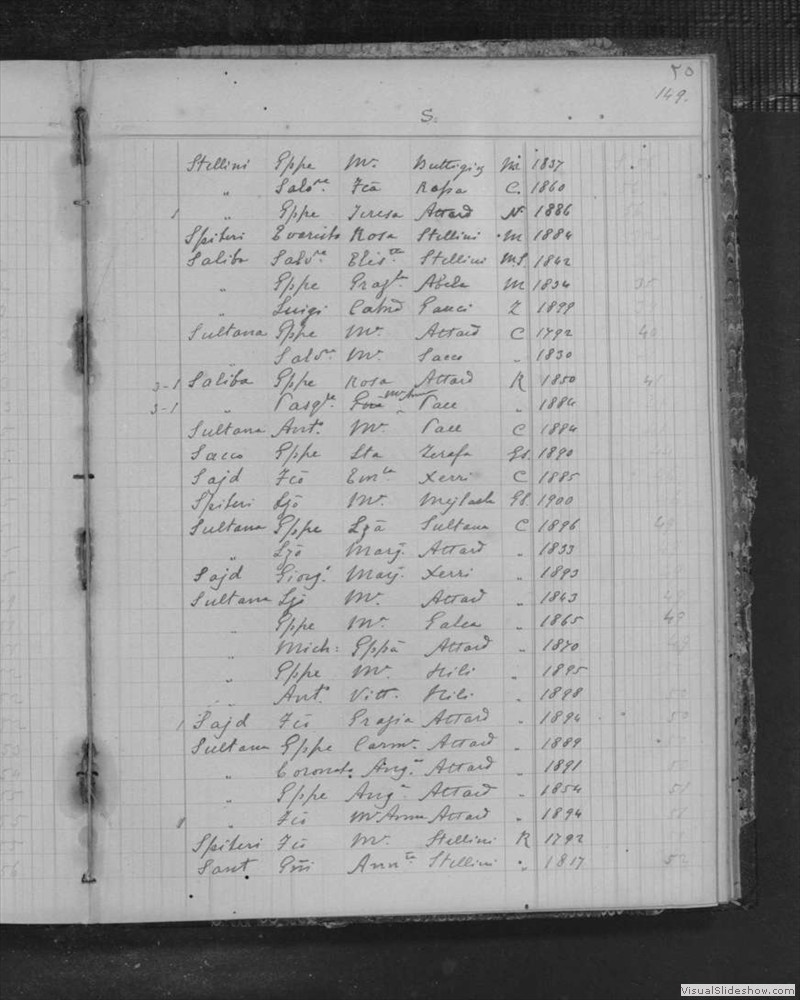 50
149.
S.
Stellini Gppe Mª Buttigig M. 1837
" Salvre Fcã Rapa C. 1860
1 " Gppe Teresa Attard N 1886
Spiteri Evaristo Rosa Stellini M 1884
Saliba Salvre Elistta Stellini M.S. 1842
" Gppe Grazta Abela M 1834 35
" Luigi Catnã Gauci Z 1899
Sultana Gppe Mª Attard C 1792 40
" Salvre Mª Sacco " 1830
3-1 Saliba Gppe Rosa Attard R 1850
3-1 " Pasqle Pace " 1884
Sultana Antº Mª Pace C 1884
Sacco Gppe Zerafa Gd. 1890
Sajd Fcõ Emla Xerri C 1885
Spiteri Lzõ Mª Mejlach Gd. 1900
Sultana Gppe Lzã Sultana C 1896
" Lzõ Marjª Attard " 1833
Sajd Giorgº Marjª Xerri " 1893
Sultana Lzõ Mª Attard " 1843
" Gppe Mª Galea " 1865 49
" Mich: Gppã Attard " 1870
" Gppe Mª Hili " 1895
" Antº Vitt. Hili " 1898
1 Sajd Fcõ Grazia Attard " 1894
Sultana Gppe Carmª Attard " 1889
" Coronato Angª Attard " 1891
" Gppe Angª Attard " 1854
1 " Fcõ Mª Anna Attard " 1894
Spiteri Fcõ Mª Stellini R 1792
Sant Gñi Annta Stellini " 1817
VisualSlideshow.com